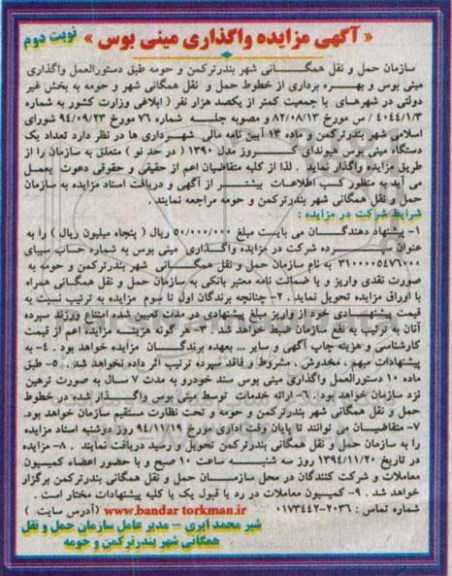 « آگهی مزایده واگذاری مینی بوس » نوبت دوم
سازمان حمل و نقل همگانی شهر بندرترکمن و حومه طبق دستورالعمل واگذاری
مینی بوس و بهره برداری از خطوط حمل و نقل همگانی شهر و حومه به بخش غیر
دولتی در شهرهای با جمعیت کمتر از یکصد هزار نفر ( ابلاغی وزارت کشور به شماره
۴۰۴۴/۱/۳ / س مورخ ۸۲/۰۸/۱۳ و مصوبه جلسه شماره ۷۶ مورخ ۹۴/۰۹/۲۳ شورای
اسلامی شهر بندرترکمن و ماده ۱۳ آیین نامه مالی شهرداری ها در نظر دارد تعداد یک
دستگاه مینی بوس هیوندای کروز مدل ۱۳۹۰ ( در حد نو ) متعلق به سازمان را از
طریق مزایده واگذار نماید . لذا از کلیه متقاضیان اعم از حقیقی و حقوقی دعوت بعمل
می آید به منظور کسب اطلاعات بیشتر از آگهی و دریافت اسناد مزایده به سازمان
حمل و نقل همگانی شهر بندرترکمن و حومه مراجعه نمایند .
شرایط شرکت در مزایده :
۱- پیشنهاد دهندگان می بایست مبلغ ۵۰/۰۰۰/۰۰۰ ریال ( پنجاه میلیون ریال ) را به
عنوان سپرده شرکت در مزایده واگذاری مینی بوس به شماره حساب سیبای
۳۱۰۰۰۰۵۴۷۶۰۰۰ به نام سازمان حمل و نقل همگانی شهر بندرترکمن و حومه به
صورت نقدی واریز و یا ضمانت نامه معتبر بانکی به سازمان حمل و نقل همگانی همراه
با اوراق مزایده تحویل نماید . ۲- چنانچه برندگان اول تا سوم مزایده به ترتیب نسبت به
قیمت پیشنهادی خود از واریز مبلغ پیشنهادی در مدت تعیین شده امتناع ورزند سپرده
آنان به ترتیب به نفع سازمان ضبط خواهد شد . ۳- هر گونه هزینه مزایده اعم از قیمت
کارشناسی و هزینه چاپ آگهی و سایر ... بعهده برندگان مزایده خواهد بود . ۴- به
پیشنهادات مبهم ، مخدوش ، مشروط و فاقد سپرده ترتیب اثر داده نخواهد شد . ۵- طبق
ماده ۱۰ دستورالعمل واگذاری مینی بوس سند خودرو به مدت ۷ سال به صورت ترهین
نزد سازمان خواهد بود . ۶- ارائه خدمات توسط مینی بوس واگذار شده در خطوط
حمل و نقل همگانی شهر بندرترکمن و حومه و تحت نظارت مستقیم سازمان خواهد بود.
۷- متقاضیان می توانند تا پایان وقت اداری مورخ ۹۴/۱۱/۱۹ روز دوشنبه اسناد مزایده
را به سازمان حمل و نقل همگانی بندرترکمن تحویل و رسید دریافت نمایند . ۸- مزایده
در تاریخ ۱۳۹۴/۱۱/۲۰ روز سه شنبه ساعت ۱۰ صبح و با حضور اعضاء کمیسیون
معاملات و شرکت کنندگان در محل سازمان حمل و نقل همگانی بندرترکمن برگزار
خواهد شد . ۹- کمیسیون معاملات در رد یا قبول یک یا کلیه پیشنهادات مختار است .
شماره تماس : ۲۰۳۶-۰۱۷۳۴۴۲ www.bandar torkman.ir (آدرس سایت )
شیر محمد ایری – مدیر عامل سازمان حمل و نقل
همگانی شهر بندرترکمن و حومه